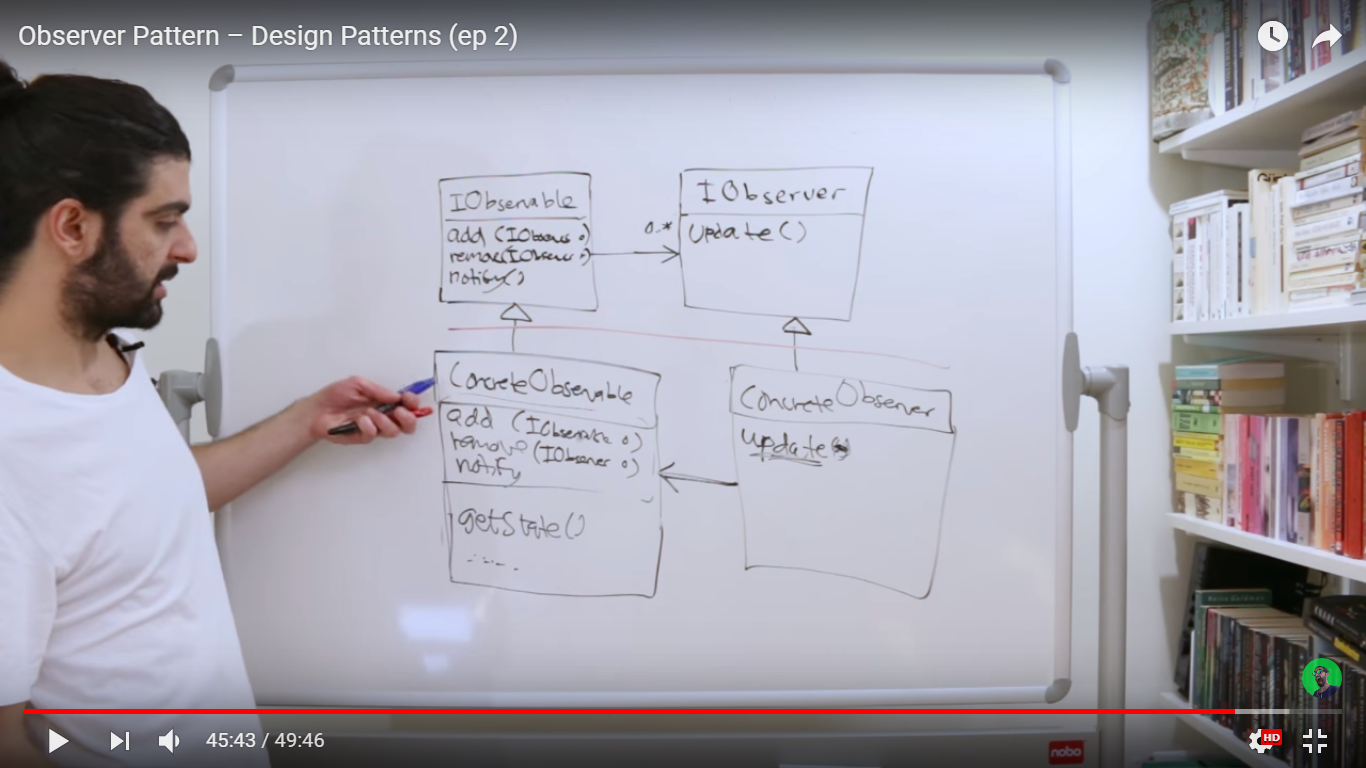 Observer Pattern – Design Patterns (ep 2)
IObservable
add (IObserver o)
remove(IObserver o)
notify()
0..*
IObserver
update()
ConcreteObservable
add (IObserver o)
remove (IObserver o)
notify
getState()
.....
ConcreteObserver
update()
45:43 / 49:46
HD
nobo